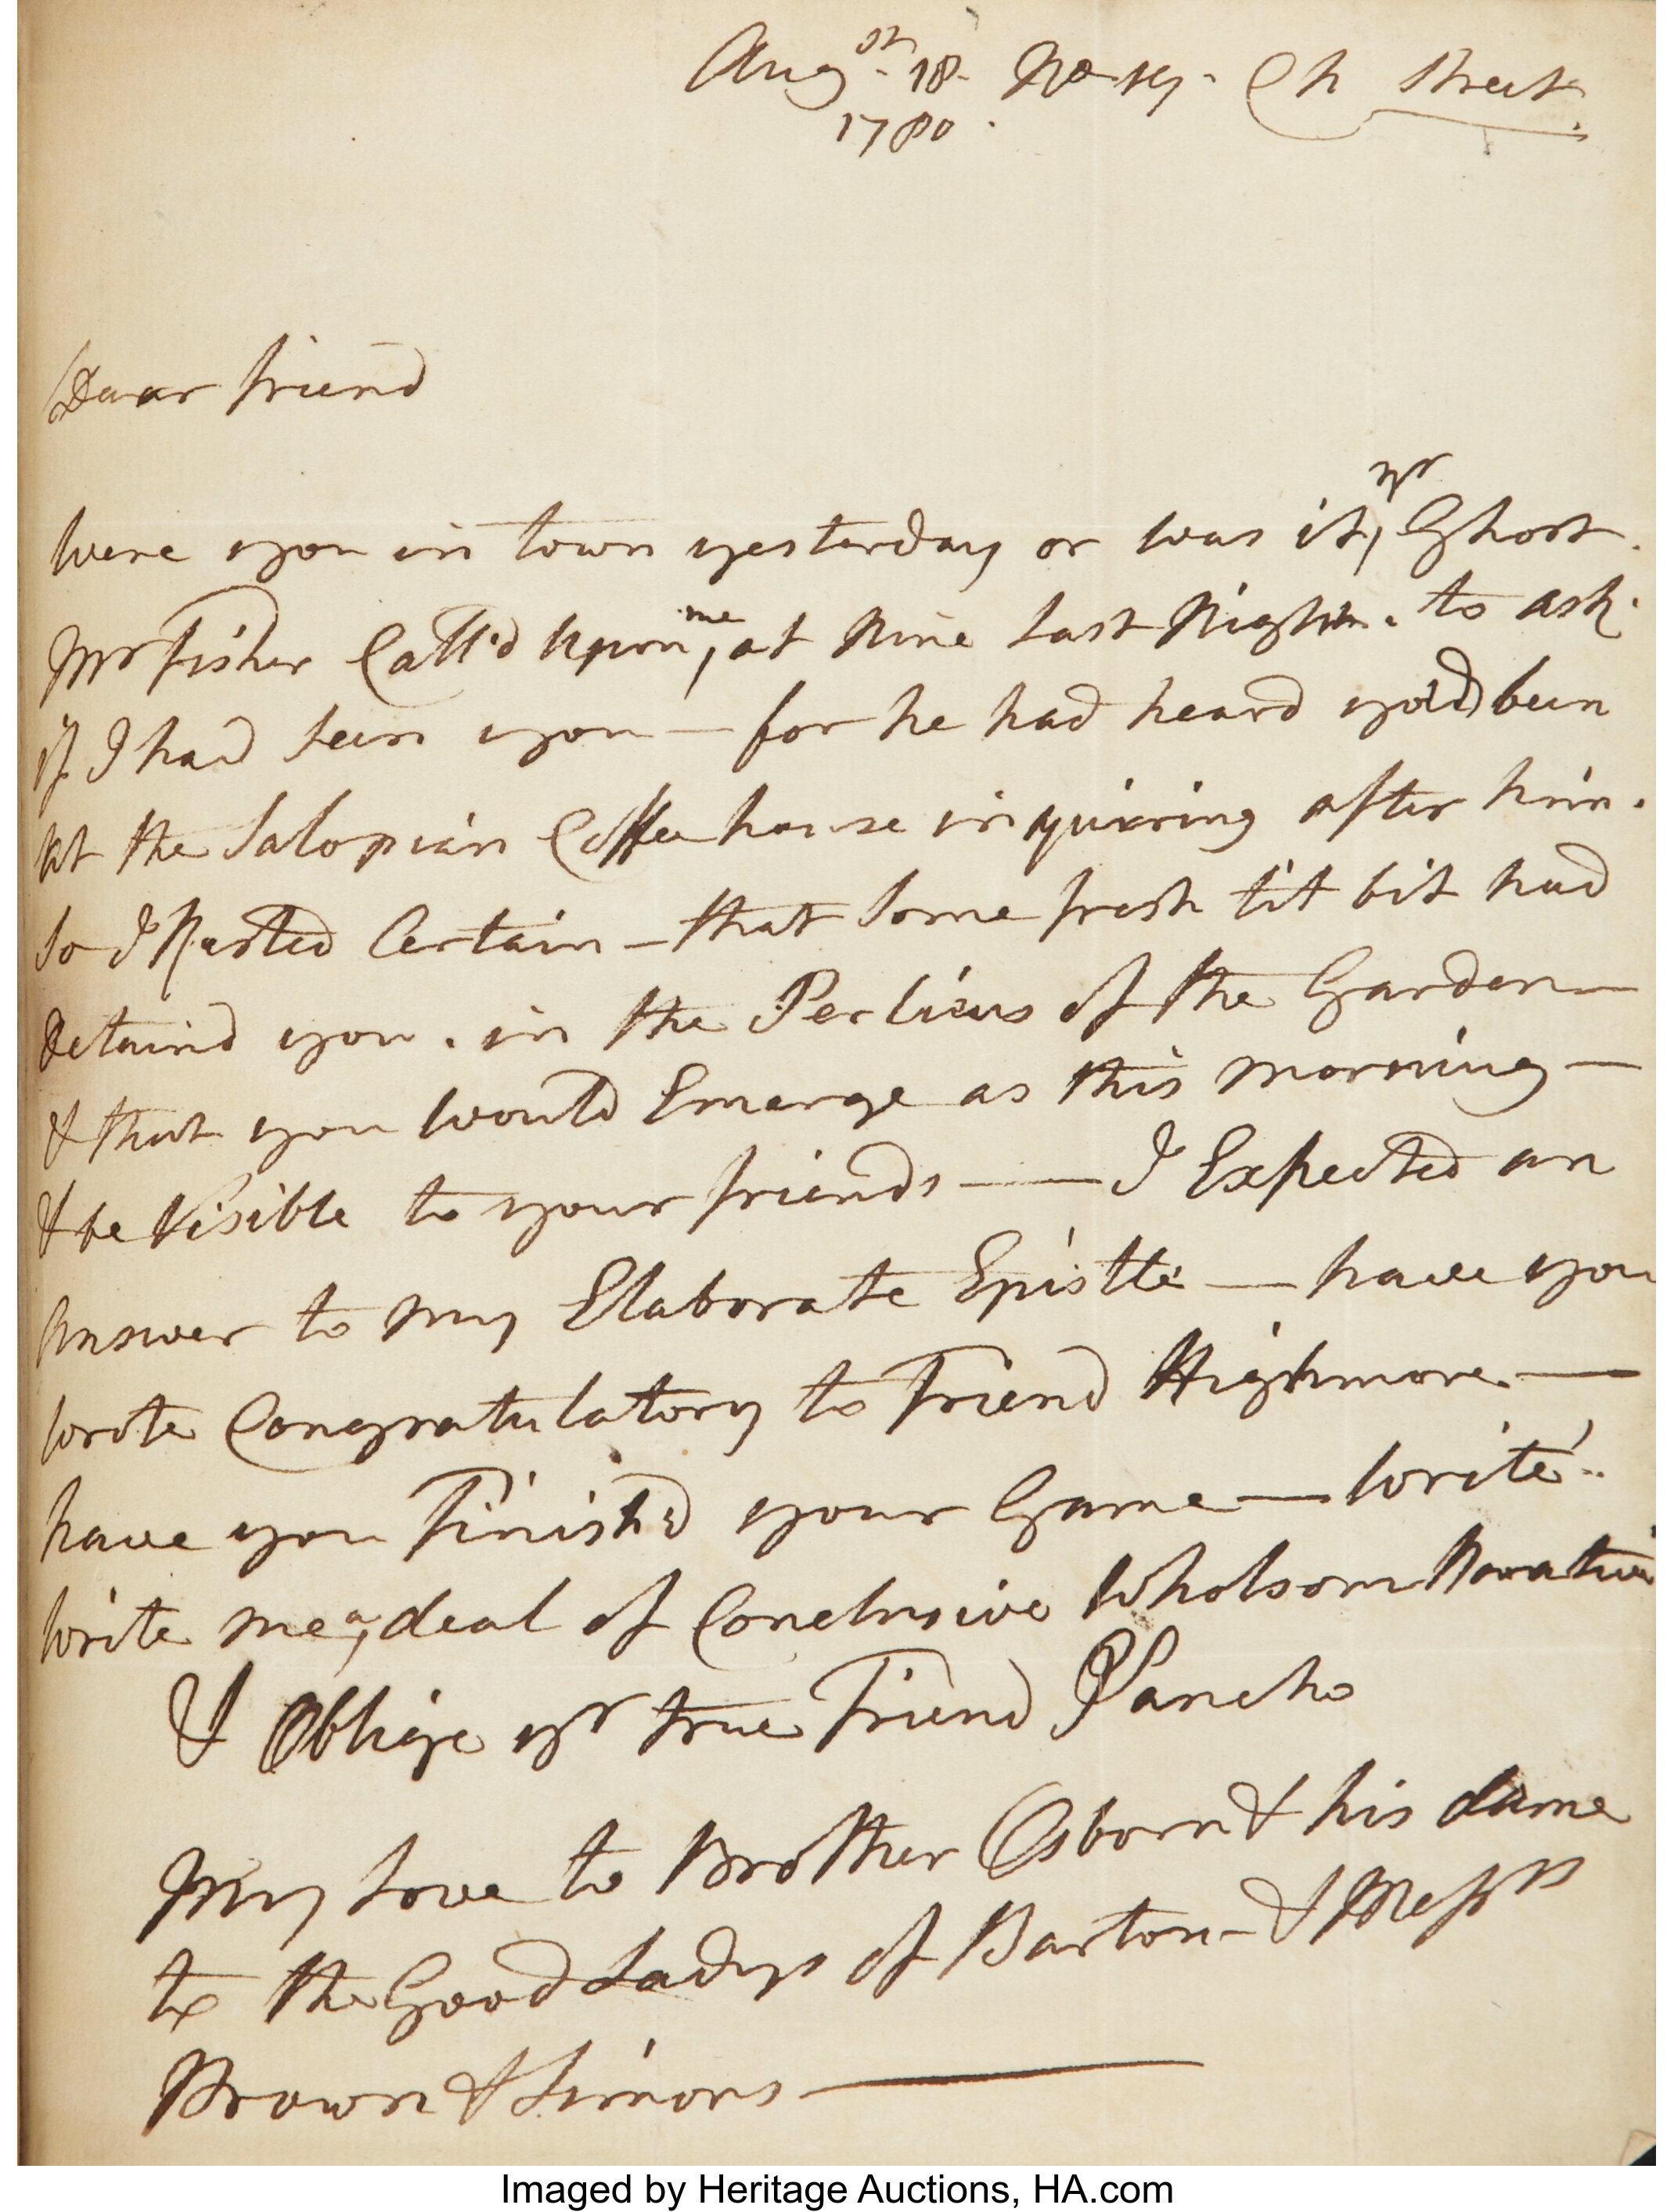 Augst. 18. No 19. Ch Street
1780.
Dear friend
Were you in town yesterday or was it, yr Ghost.
Mr Fisher Call'd Upon me, at Nine Last Night. to ask
if I had seen you — for he had heard you'd been
At the Salopian Coffee house inquiring after him.
So I Rested Certain — that Some fresh tit bit had
Detaind you. in the of the Garden —
& that you would Emerge as this morning —
& be Visible to your friends — I Expected an
Answer to my Elaborate Epistle — have you
wrote Congratulatory to Friend Highmore. —
have you Finish'd your Game — write.
write me, a deal of Conclusive Wholsom
& Oblige yr true Friend Sancho
My Love to Brother Osborn & his dame
to the Good Ladys of Barton — & Messrs
Brown & Simons —
Imaged by Heritage Auctions, HA.com